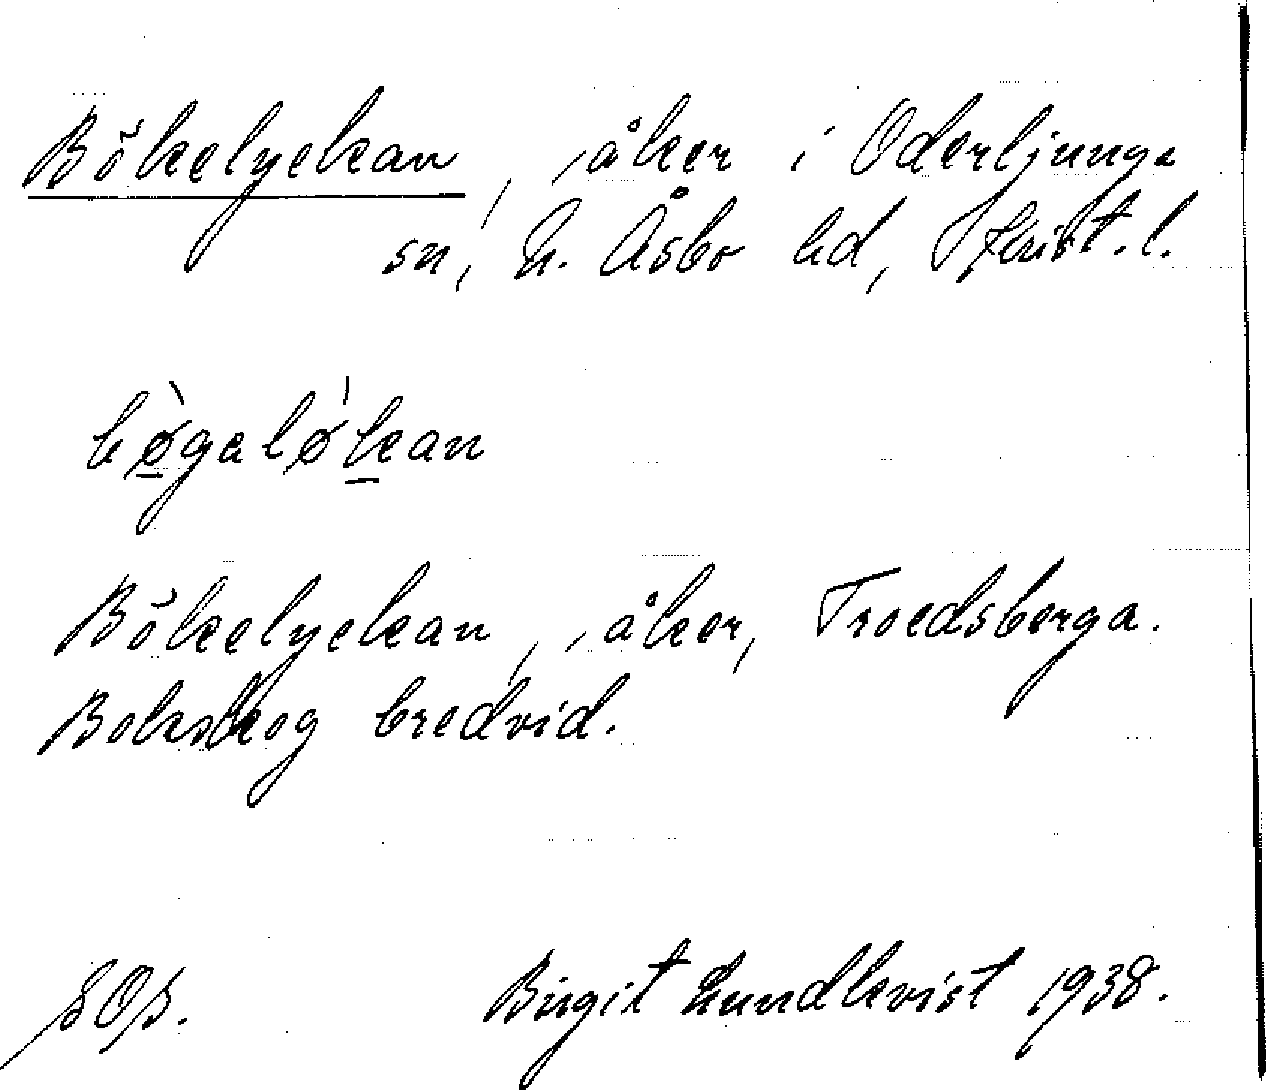 Bökelyckan, åker i Oderljunga
sn, N. Åsbo hd, Krist. l.
bø̀galø̍kan
Bökelyckan, åker, Troedsberga.
Bokskog bredvid.
Birgit Lundkvist 1938.